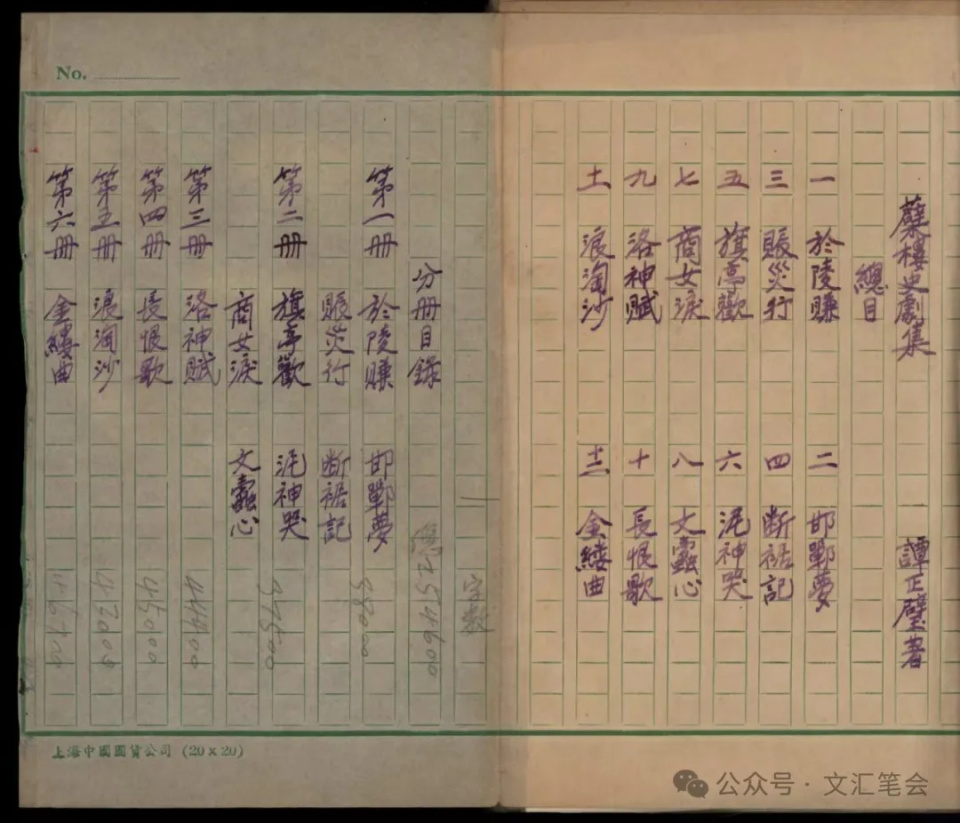 蘖樓史劇集　譚正璧著
總目
一　於陵賺　二　邯鄲夢
三　賑災行　四　断裾記
五　旗亭歡　六　泥神哭
七　商女淚　八　文蠹心
九　洛神賦　十　長恨歌
十一　浪淘沙　十二　金縷曲
字数
分冊目錄　254600
第一冊　於陵賺　邯鄲夢　38000
賑災行　断裾記
第二冊　旗亭歡　泥神哭　37500
商女淚　文蠹心
第三冊　洛神賦　44400
第四冊　長恨歌　45000
第五冊　浪淘沙　43000
第六冊　金縷曲　46700
No.
上海中國國貨公司 (20×20)
公众号·文汇笔会